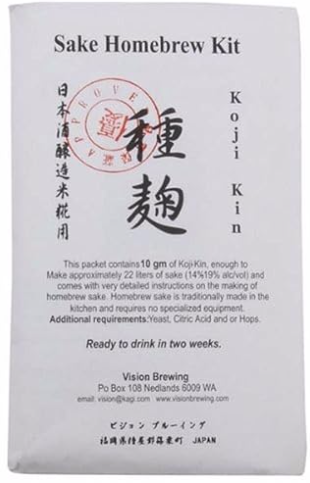 Sake Homebrew Kit
日本酒醸造米糀用
APPROVED
優
種麹
Koji Kin
This packet contains 10 gm of Koji-Kin, enough to
Make approximately 22 liters of sake (14%19% alc/vol) and
comes with very detailed instructions on the making of
homebrew sake. Homebrew sake is traditionally made in the
kitchen and requires no specialized equipment.
Additional requirements:Yeast, Citric Acid and or Hops.
Ready to drink in two weeks.
Vision Brewing
Po Box 108 Nedlands 6009 WA
email: vision@kagi.com www.visionbrewing.com
ビジョン ブルーイング
JAPAN